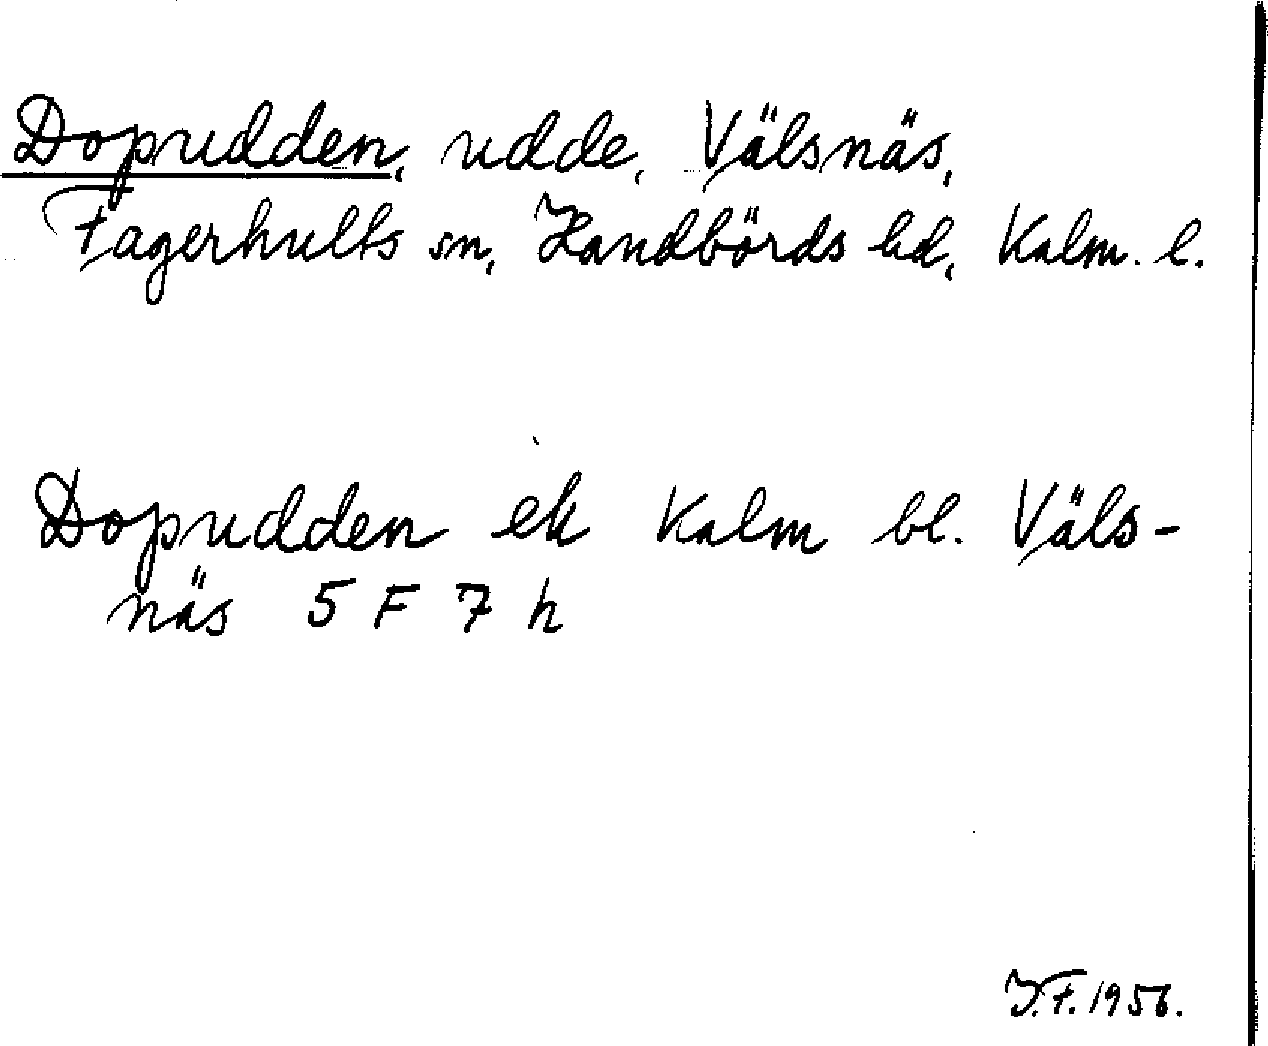 Dopudden, udde, Välsnäs,
Fagerhults sn, Handbörds hd, Kalm. l.
Dopudden ek Kalm bl. Väls-
näs 5 F 7 h
J.F. 1956.